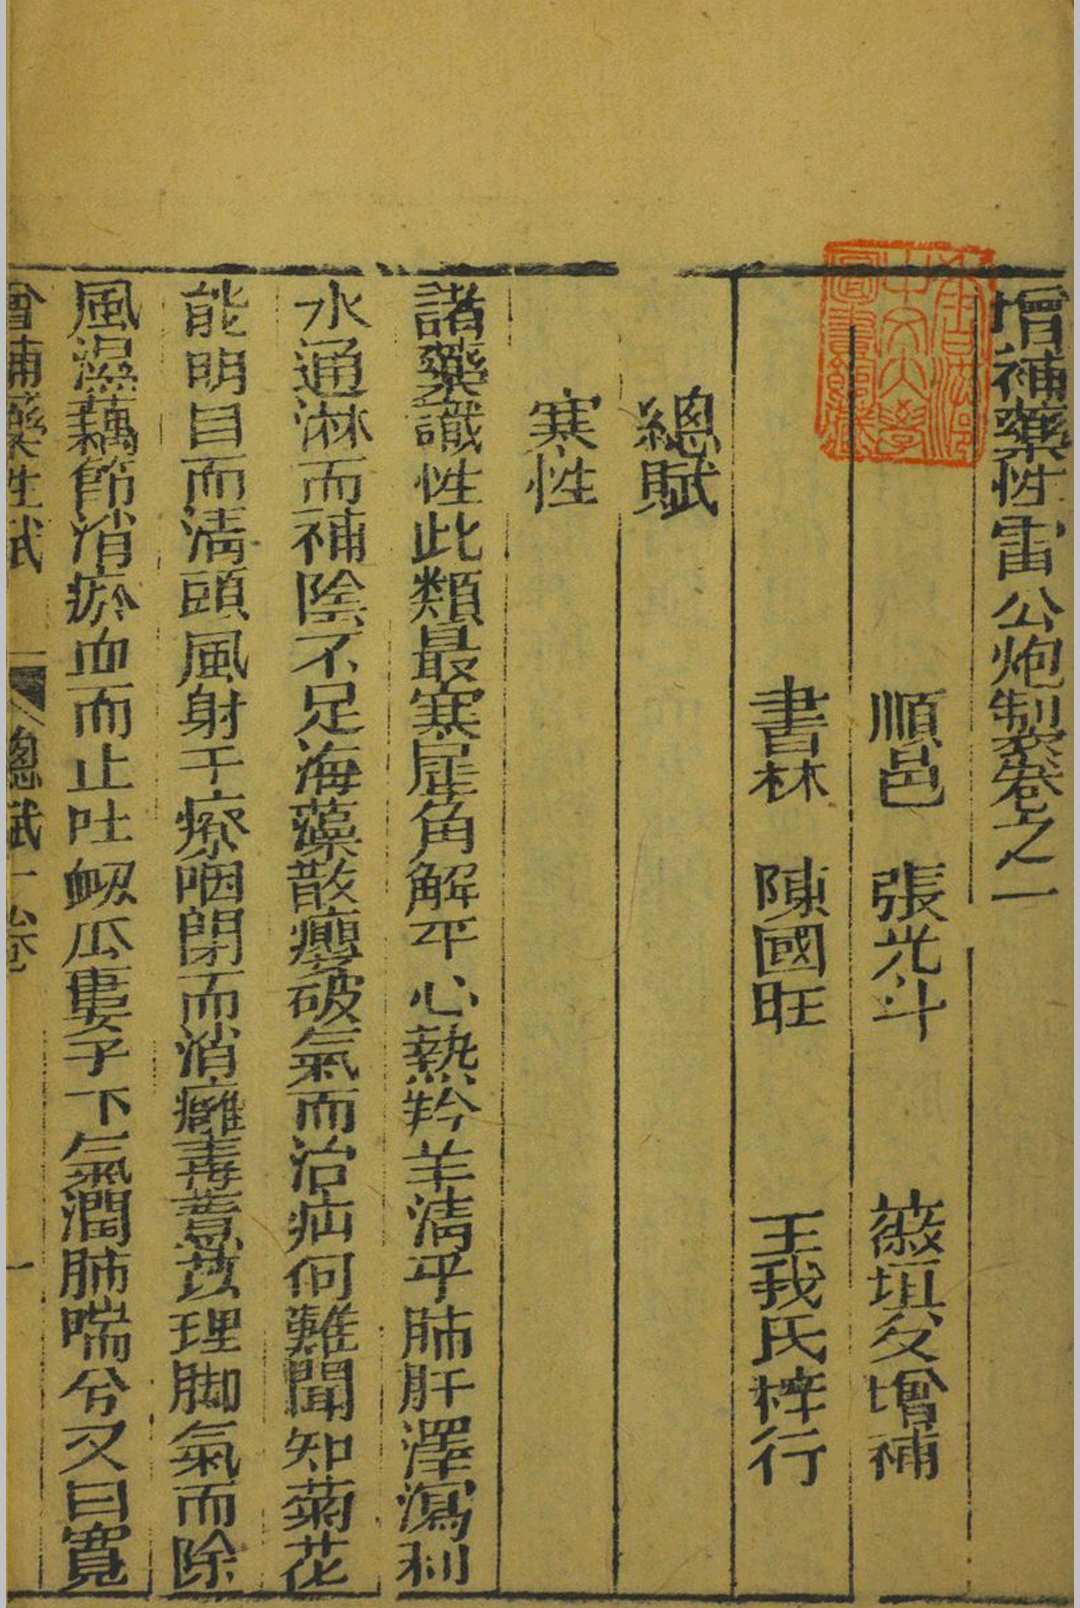 增補藥性雷公炮製卷之一
順邑 張光斗 薇垣父增補
書林 陳國旺 王我氏梓行
總賦
寒性
諸藥識性此類最寒犀角解乎心熱羚羊清乎肺肝澤瀉利
水通淋而補陰不足海藻散癭破氣而治疝何難聞知菊花
能明目而清頭風射干療咽閉而消癰毒薏苡理脚氣而除
風濕藕節消瘀血而止吐衂瓜蔞子下氣潤肺喘兮又曰寬
增補藥性賦 總賦一卷 一